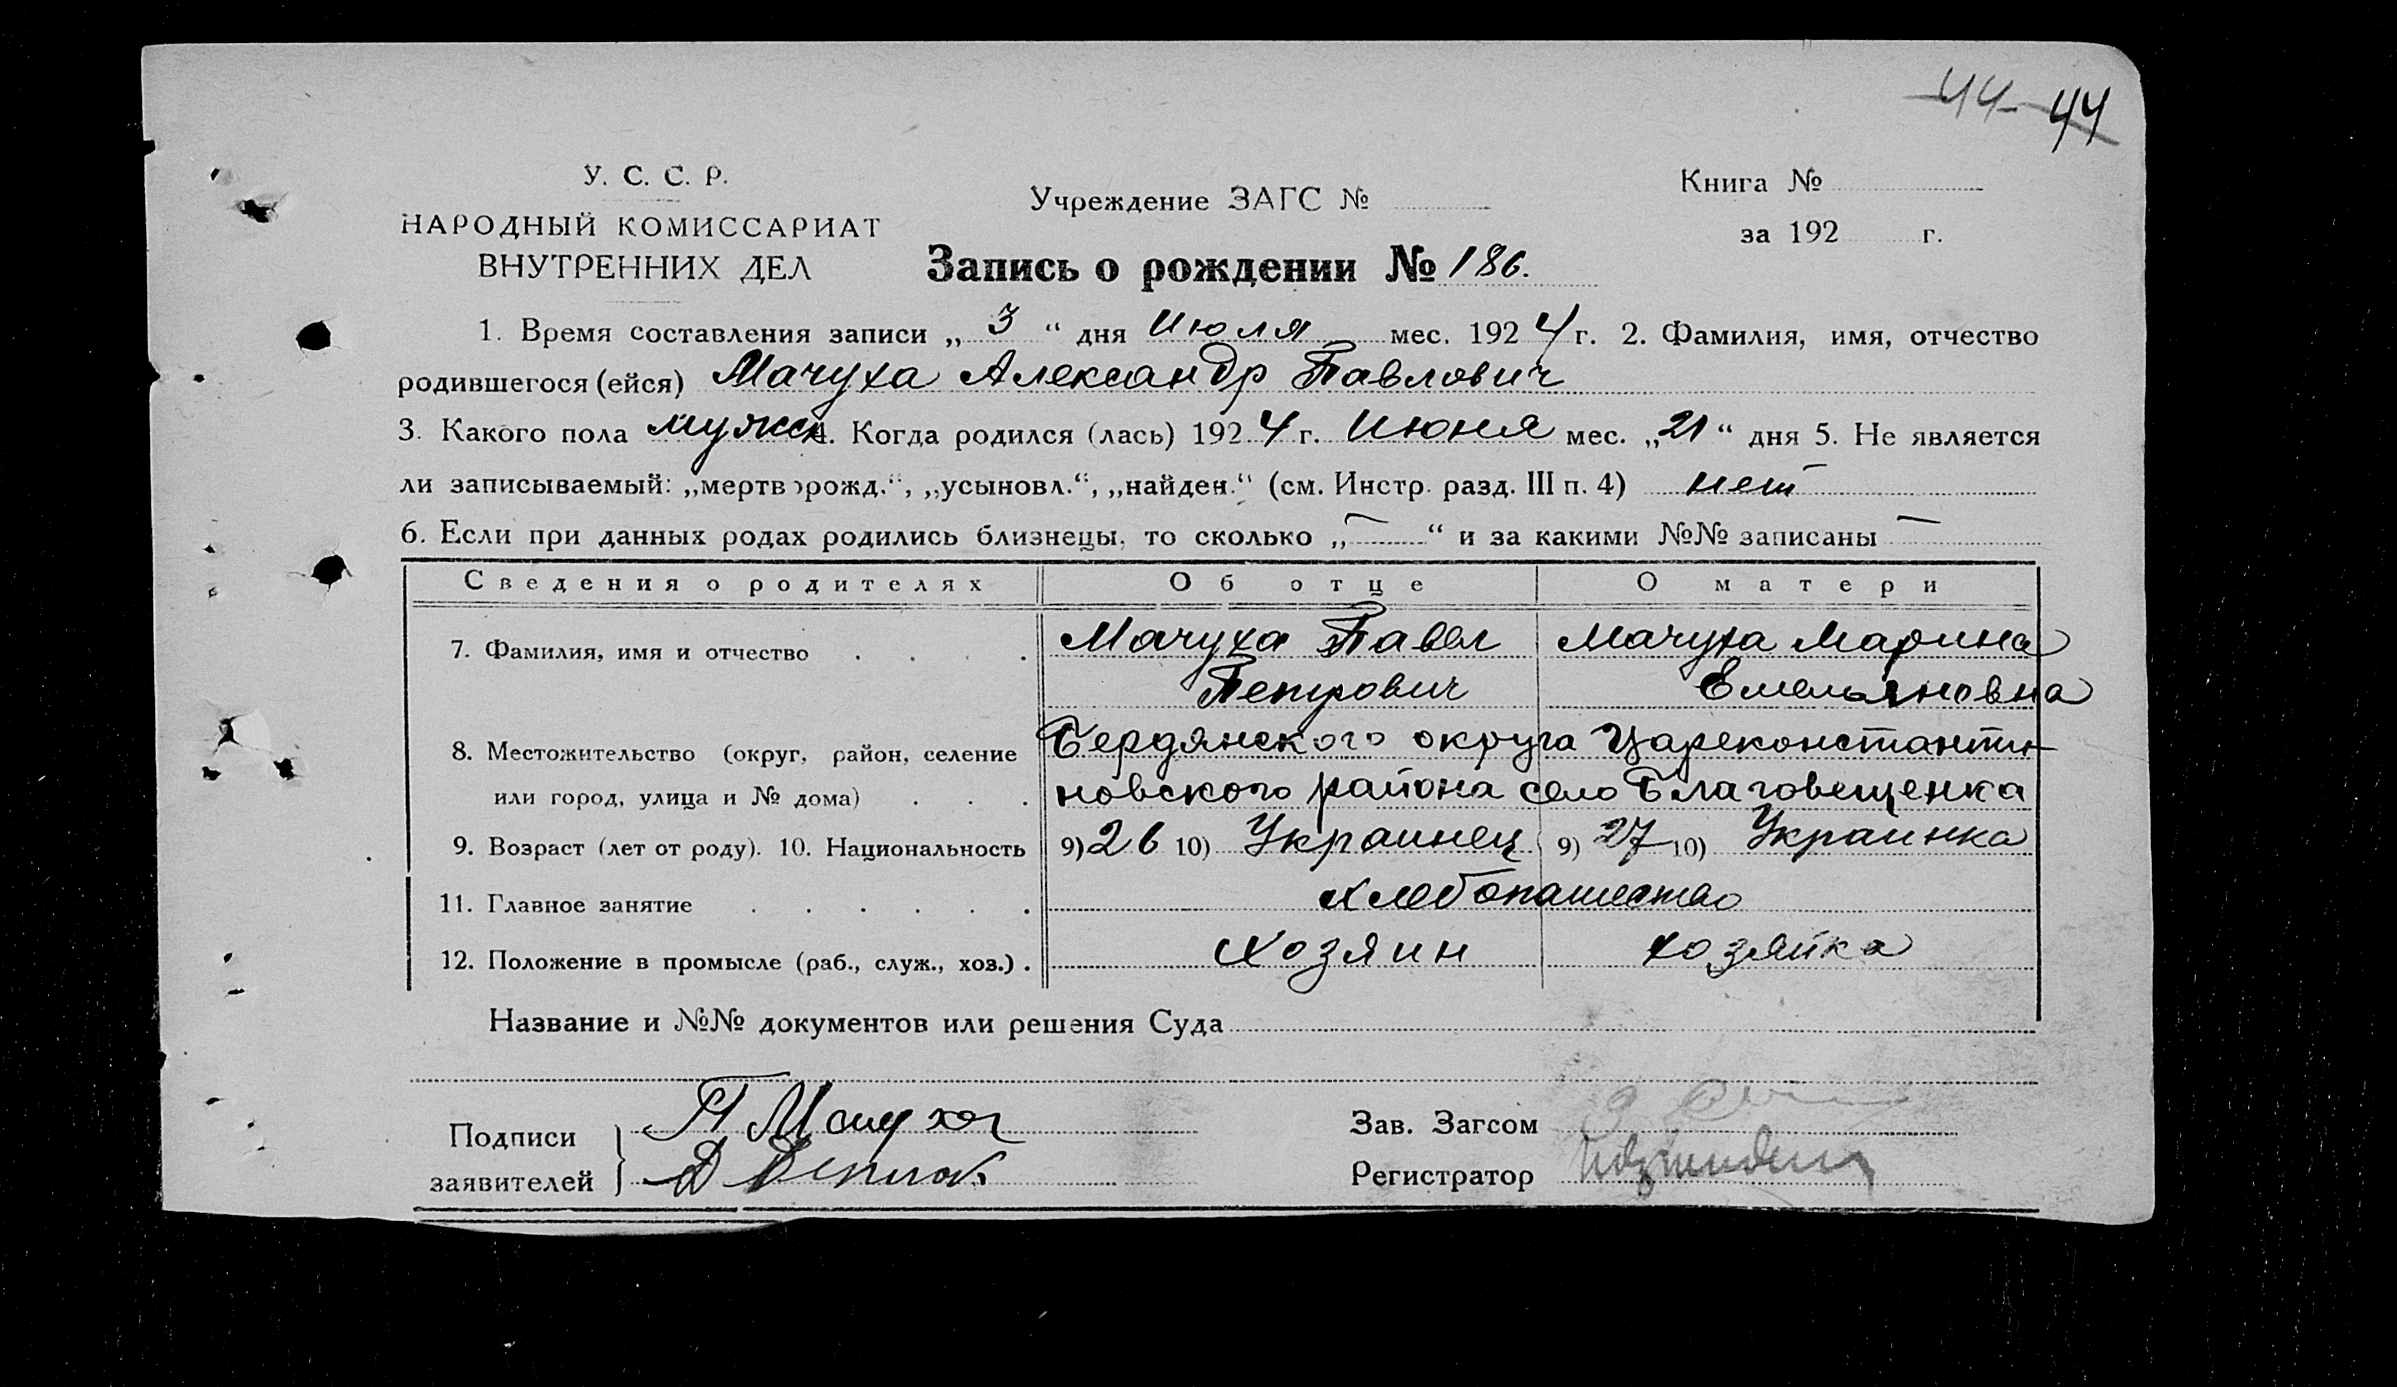 44 44
У. С. С. Р.
НАРОДНЫЙ КОМИССАРИАТ
ВНУТРЕННИХ ДЕЛ
Учреждение ЗАГС №
Книга №
за 192 г.
Запись о рождении № 186.
1. Время составления записи „ 3 “ дня Июля мес. 192 4 г. 2. Фамилия, имя, отчество
родившегося (ейся) Мачуха Александр Павлович
3. Какого пола мужск 4. Когда родился (лась) 192 4 г. Июня мес. „ 21 “ дня 5. Не является
ли записываемый: „мертворожд.“, „усыновл.“, „найден.“ (см. Инстр. разд. III п. 4) нет
6. Если при данных родах родились близнецы, то сколько „ — “ и за какими №№ записаны —
Сведения о родителях Об отце О матери
7. Фамилия, имя и отчество . . . . Мачуха Павел Мачуха Марина
Петрович Емельяновна
8. Местожительство (округ, район, селение Бердянского округа Цареконстанти-
или город, улица и № дома) . . . новского района село Благовещенка
9. Возраст (лет от роду). 10. Национальность 9) 26 10) Украинец 9) 27 10) Украинка
11. Главное занятие . . . . . . Хлебопашество
12. Положение в промысле (раб., служ., хоз.) . Хозяин хозяйка
Название и №№ документов или решения Суда
Подписи
заявителей
П Мачуха
Д
Зав. Загсом
Регистратор